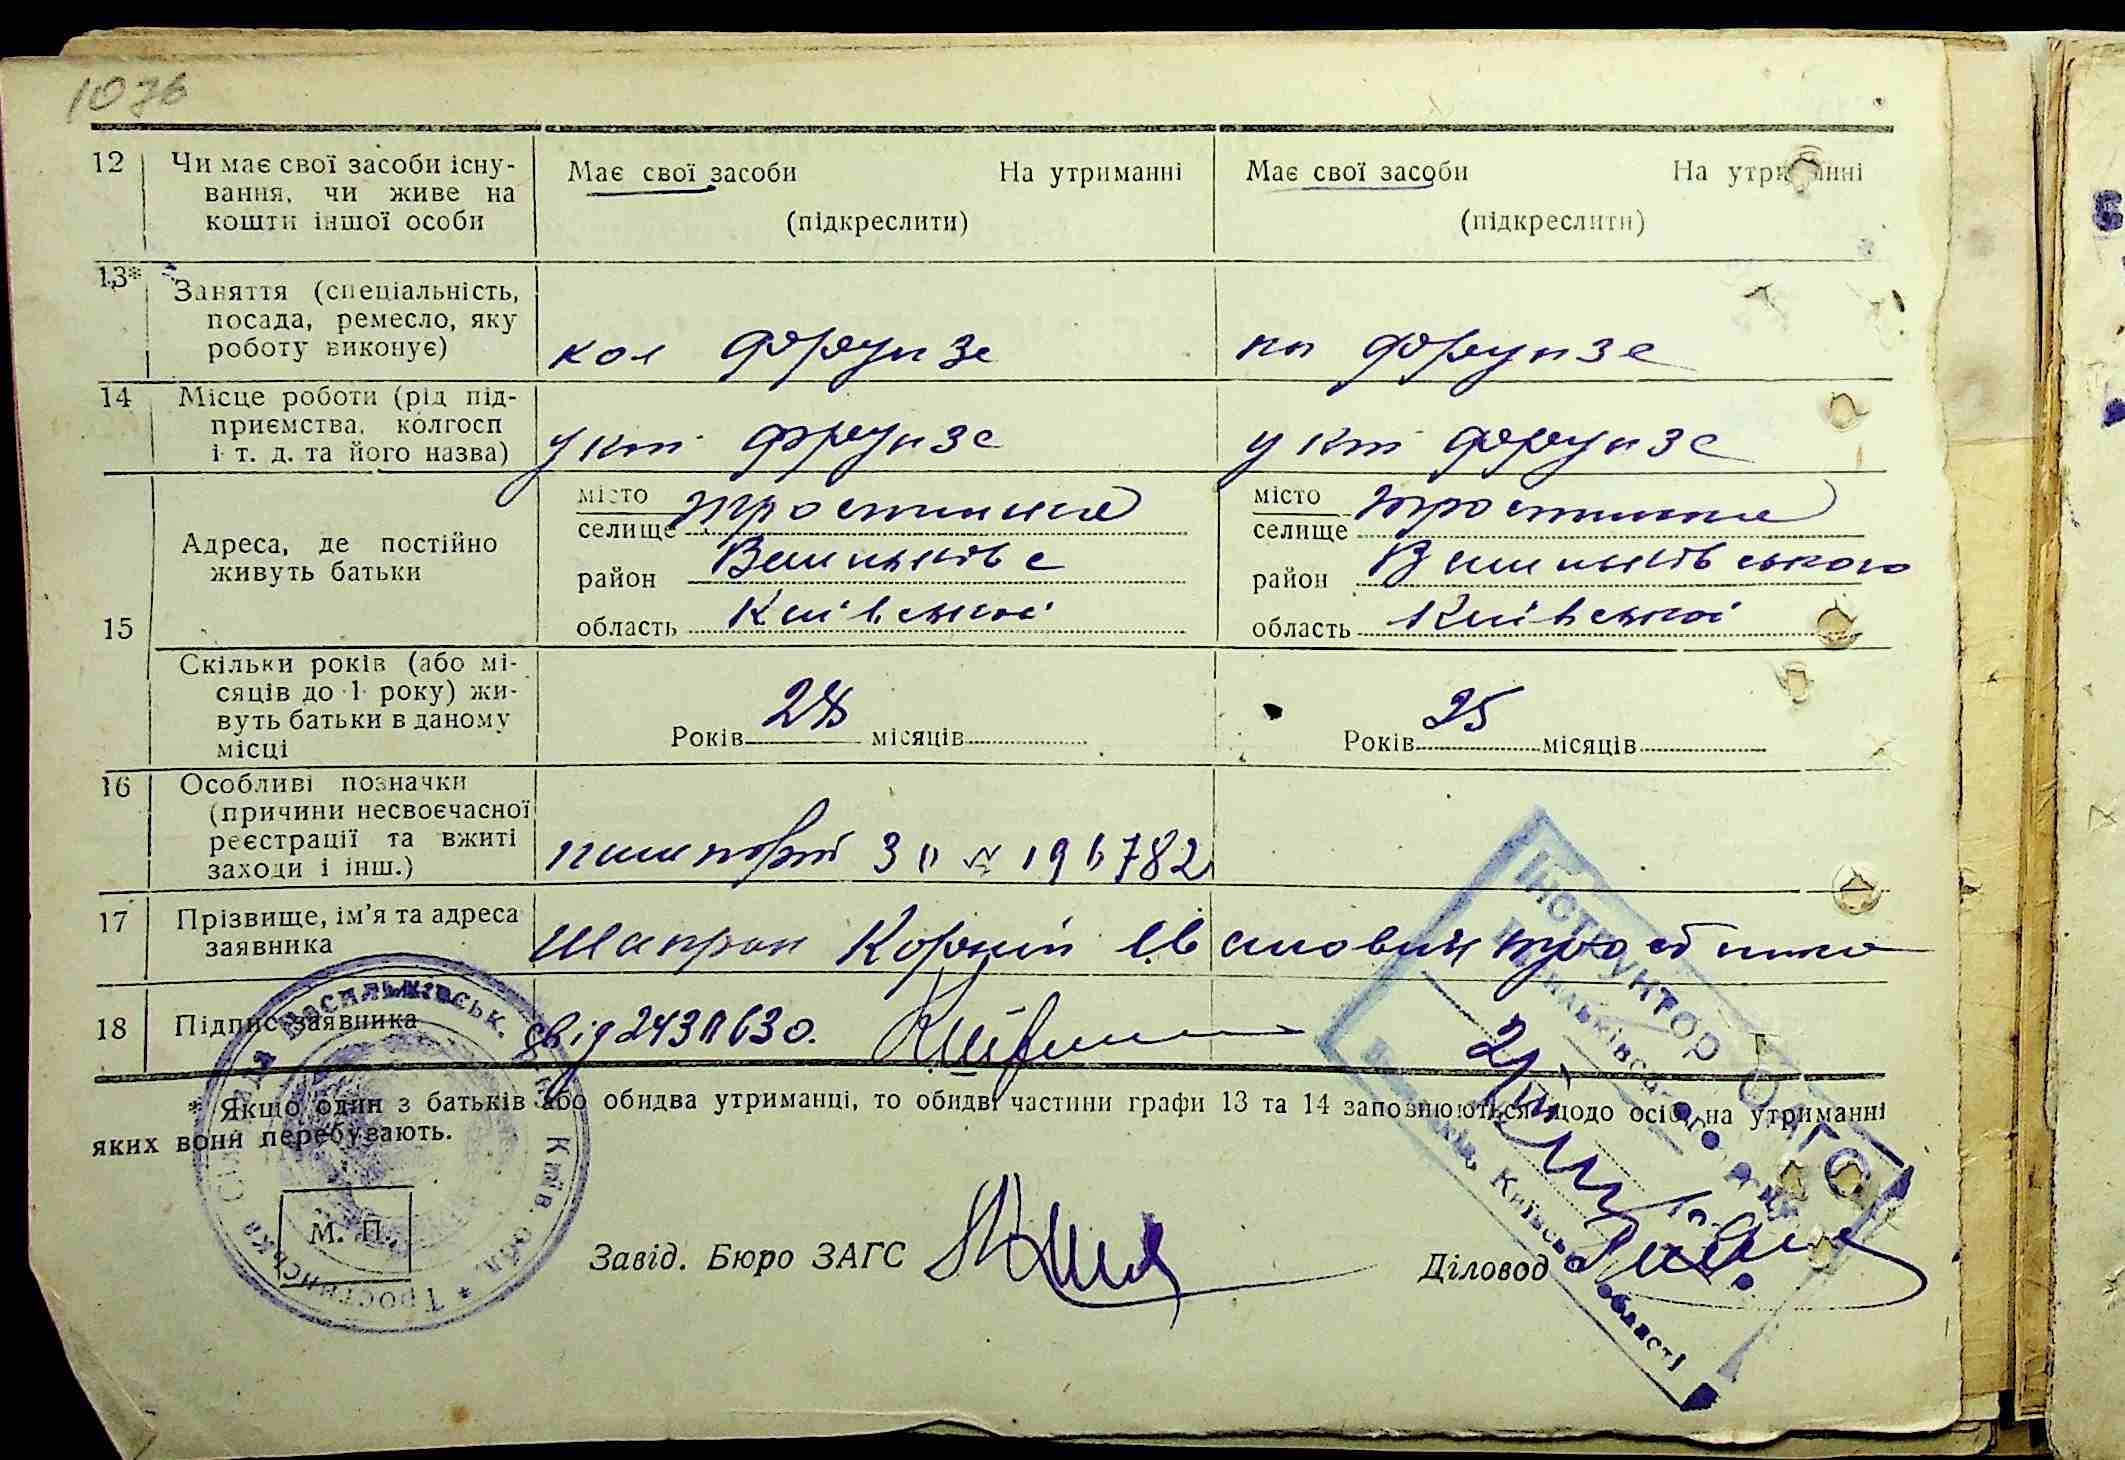 1036
12 Чи має свої засоби існування, чи живе на кошти іншої особи
Має свої засоби На утриманні
(підкреслити)
Має свої засоби На утриманні
(підкреслити)
13* Заняття (спеціальність, посада, ремесло, яку роботу виконує)
кол Фрунзе
кп Фрунзе
14 Місце роботи (рід підприємства, колгосп і т. д. та його назва)
у кт Фрунзе
у кт Фрунзе
15 Адреса, де постійно живуть батьки
місто
селище Тростинка
район Васильківс
область Київської
місто
селище Тростинка
район Васильківського
область Київської
Скільки років (або місяців до 1 року) живуть батьки в даному місці
Років 28 місяців
Років 25 місяців
16 Особливі позначки (причини несвоєчасної реєстрації та вжиті заходи і інш.)
пашпорт 3 п № 196782
17 Прізвище, ім’я та адреса заявника
Шапран Корній Іванович Тростинка
18 Підпис заявника
* Якщо один з батьків або обидва утриманці, то обидві частини графи 13 та 14 заповнюються щодо осіб, на утриманні
яких вони перебувають.
М. П.
Завід. Бюро ЗАГС
Діловод
Тростинська Сільська Рада Васильківськ. Київ. обл.
Інструктор ЗАГС
Васильківського
Київської області